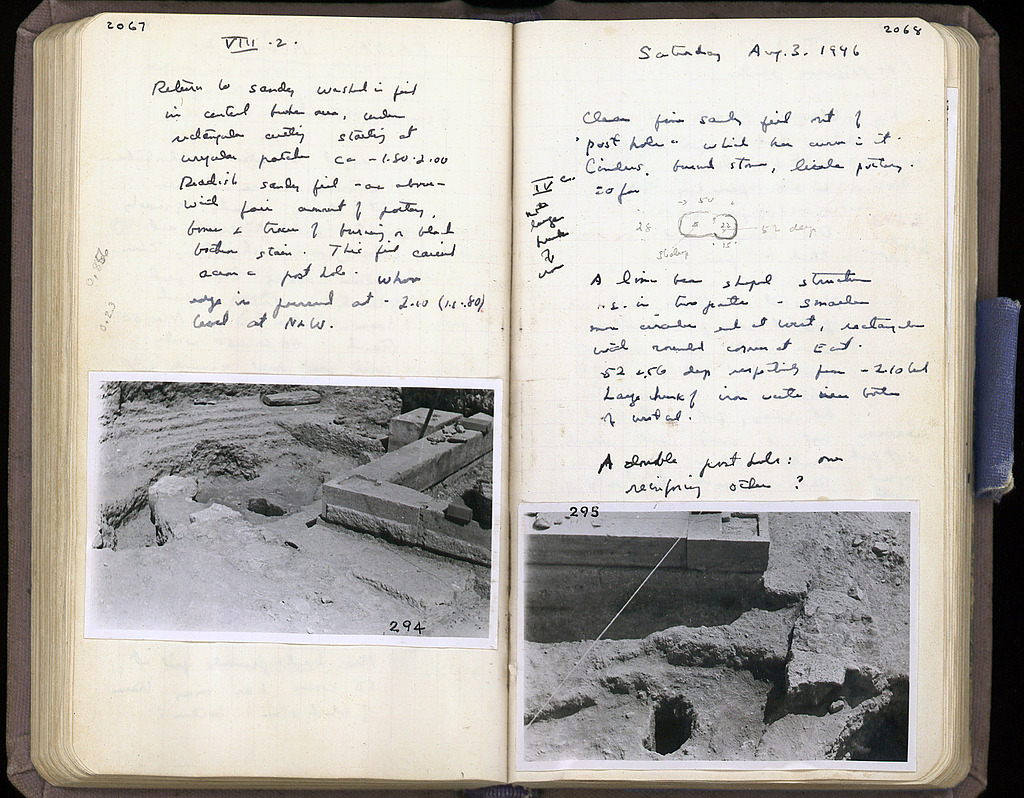 2067
VIII.2.
Return to sandy washed in fill
in central broken area, under
rectangular cutting starting at
irregular patches ca -1.80-2.00
Reddish sandy fill - as above -
with fair amount of pottery,
bones & traces of burning or black
bottom stain. This fill covered
across a post hole. whose
edge is preserved at -2.00
level at N & W.
0.856
0.23
294
2068
Saturday Aug. 3. 1946
Clean fine sandy fill out of
"post hole" which has curve in it.
Cinders, burned stone, little pottery.
so far
IV
with
large
of
iron
50
28
22
52 deep
15
A lima bean shaped structure
is in two parts - smaller
more circular end at west, rectangular
with rounded corners at East.
52 & 56 deep respectively from -2.10 level
Large chunk of iron waste near bottom
of west end.
A double post hole: one
reinforcing other?
295